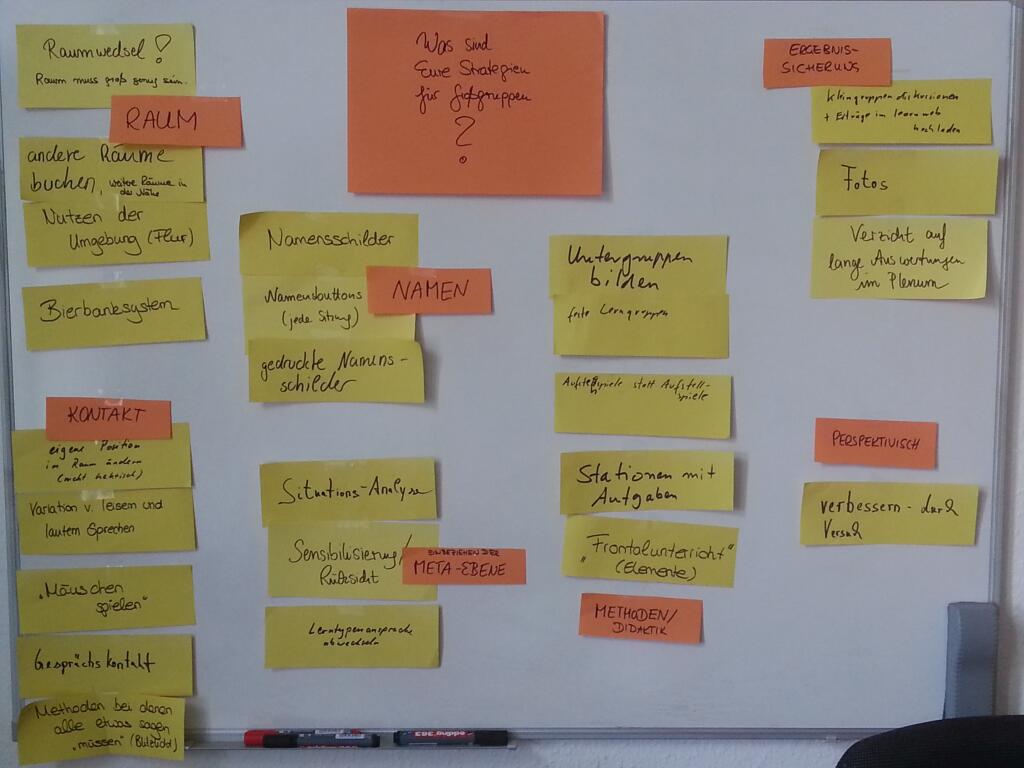 Was sind
Eure Strategien
für Großgruppen
?
Raumwechsel!
Raum muss groß genug sein.
RAUM
andere Räume
buchen, weitere Räume in
der Nähe
Nutzen der
Umgebung (Flur)
Bierbanksystem
KONTAKT
eigene Position
im Raum ändern
(nicht hektisch)
Variation v. leisem und
lautem Sprechen
"Mäuschen
spielen"
Gesprächskontakt
Methoden bei denen
alle etwas sagen
"müssen" (Blitzlicht)
Namensschilder
Namensbuttons
(jede Sitzung)
NAMEN
gedruckte Namens-
schilder
Situations-Analyse
Sensibilisierung/
Rücksicht
EINBEZIEHEN DER
META-EBENE
Lerntypenansprache
abwechseln
Untergruppen
bilden
feste Lerngruppen
statt Aufstell-
spiele
Stationen mit
Aufgaben
"Frontalunterricht"
(Elemente)
METHODEN/
DIDAKTIK
ERGEBNIS-
SICHERUNG
Kleingruppendiskussionen
+ Erträge im learnweb
hochladen
Fotos
Verzicht auf
lange Auswertungen
im Plenum
PERSPEKTIVISCH
verbessern - durch
Versuch
edding 383